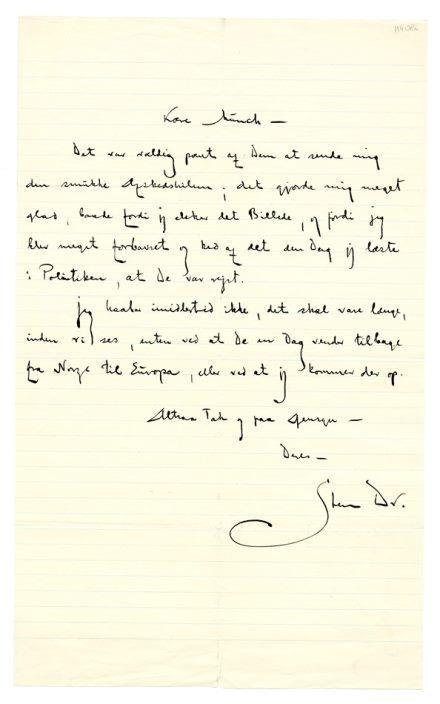 Kære Munch —
Det var vældig pænt af Dem at sende mig
den smukke Afskedshilsen; det gjorde mig meget
glad, baade fordi jeg elsker det Billede, og fordi jeg
blev meget forbavset og ked af det den Dag jeg læste
i Politiken, at De var rejst.
Jeg haaber imidlertid ikke, det skal vare længe,
inden vi ses, enten ved at De en Dag vender tilbage
fra Norge til Europa, eller ved at jeg kommer der op.
Altsaa Tak og paa Gensyn —
Deres —